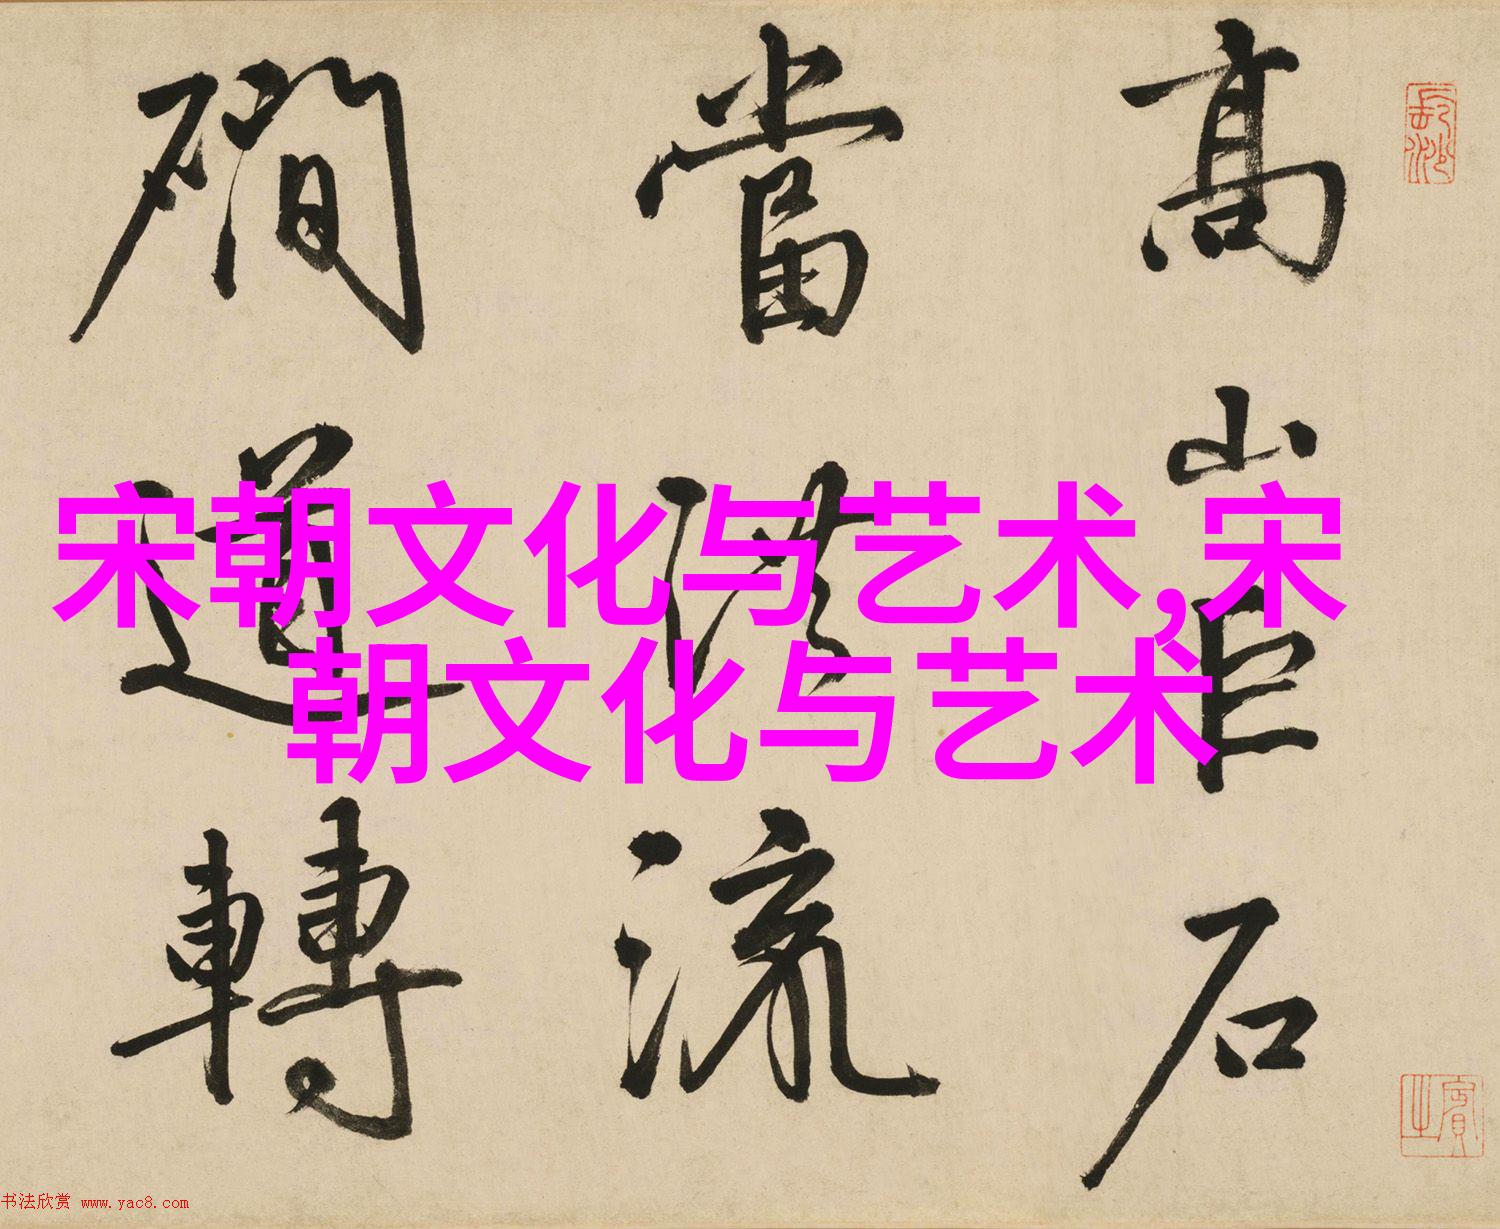 長沙
賓之
高山巨石
當洪流
磵道轉
宋朝文化与艺术,宋
朝文化与艺术
书法欣赏 www.yac8.com